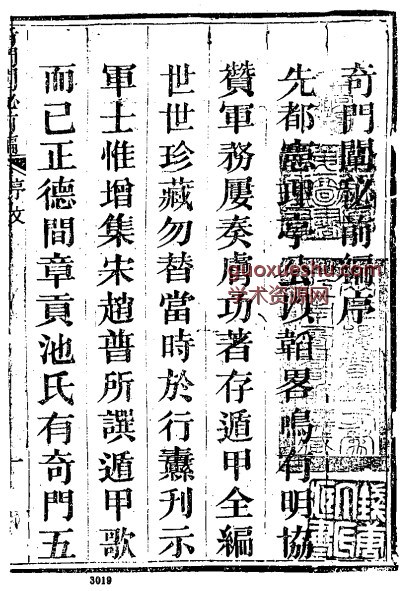 奇門闡秘前編序
先都憲理亭公以韜畧鳴有明協
贊軍務屢奏膚功著存遁甲全編
世世珍藏勿替當時於行纛刊示
軍士惟增集宋趙普所譔遁甲歌
而已正德間章貢池氏有奇門五
序
guoxueshu.com
学术资源网
3019